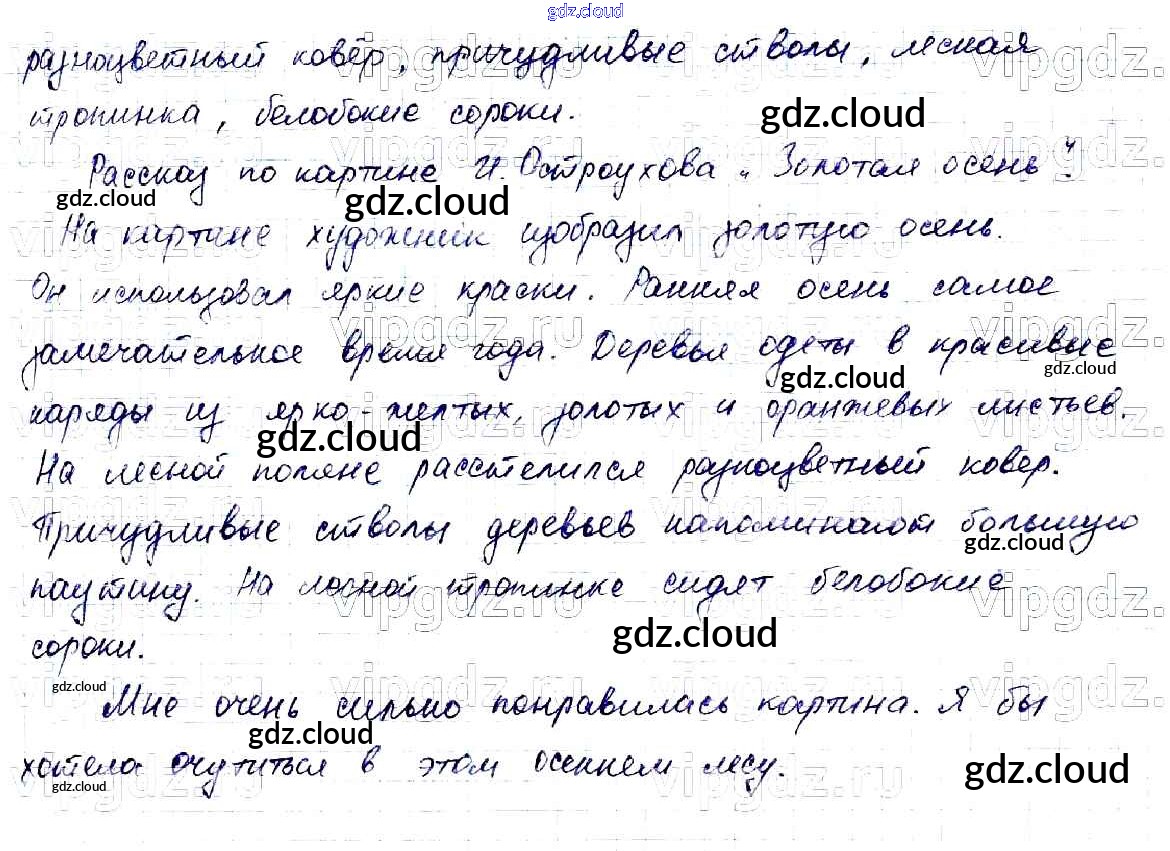 gdz.cloud
разноцветный ковёр, причудливые стволы, лесная
тропинка, белобокие сороки.
gdz.cloud
Рассказ по картине И. Остроухова „Золотая осень".
gdz.cloud gdz.cloud
На картине художник изобразил золотую осень.
Он использовал яркие краски. Ранняя осень самое
vipgdz.ru vipgdz.ru
замечательное время года. Деревья одеты в красивые
gdz.cloud gdz.cloud
наряды из ярко-желтых, золотых и оранжевых листьев.
gdz.cloud
На лесной поляне расстелился разноцветный ковер.
vipgdz.ru vipgdz.ru
Причудливые стволы деревьев напоминают большую
gdz.cloud
паутину. На лесной тропинке сидят белобокие
vipgdz.ru vipgdz.ru
gdz.cloud
сороки.
vipgdz.ru vipgdz.ru
gdz.cloud
Мне очень сильно понравилась картина. Я бы
gdz.cloud
хотела очутиться в этом осеннем лесу.
gdz.cloud gdz.cloud
vipgdz.ru vipgdz.ru